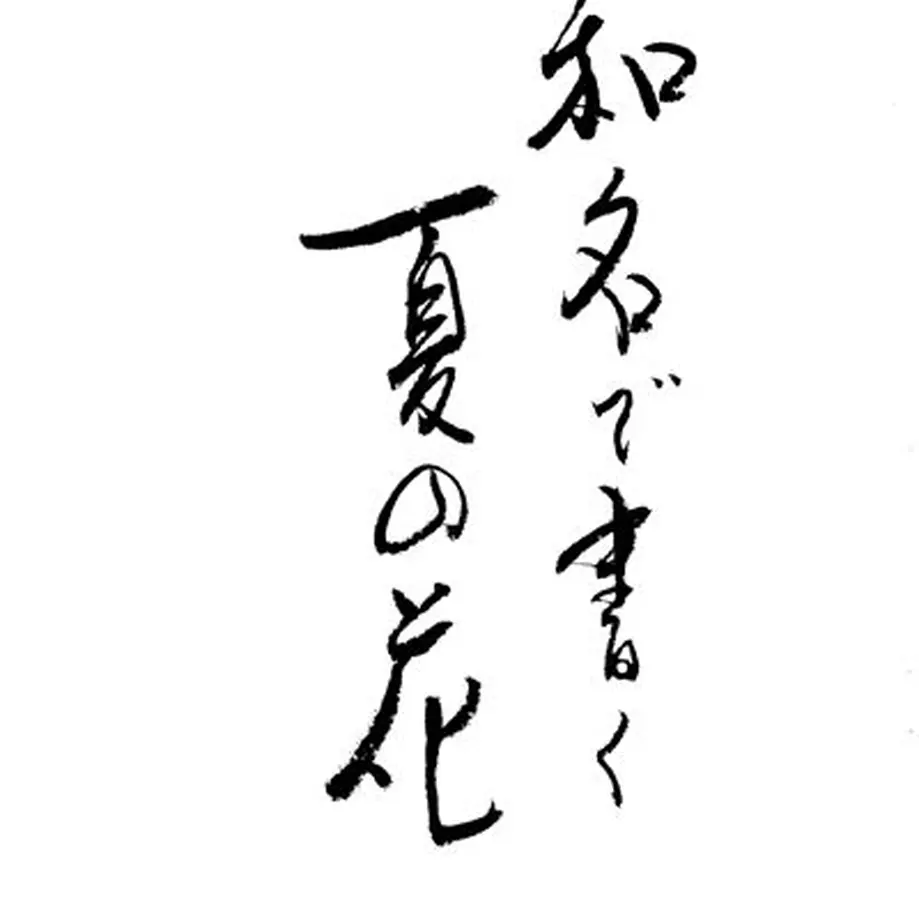 和名で書く
夏の花